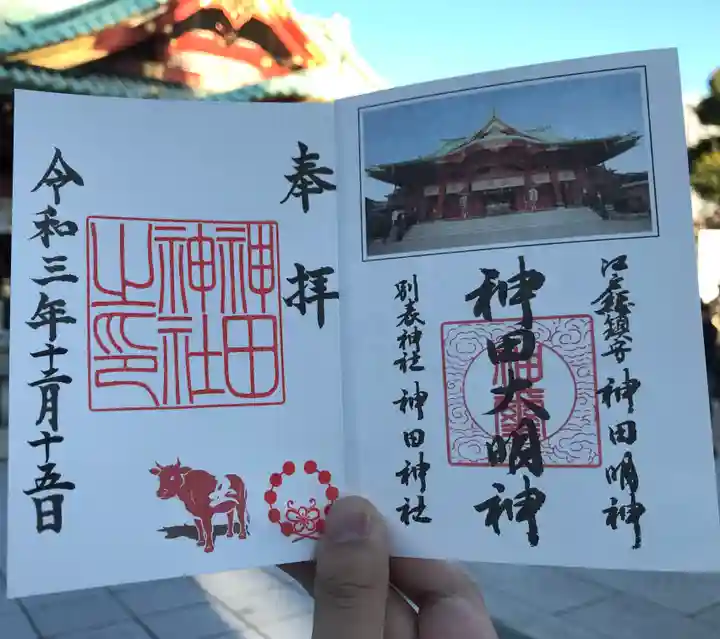 江戸総鎮守 神田明神
神田大明神
別表神社 神田神社
奉拝
神田
神社
之印
令和三年十二月十五日